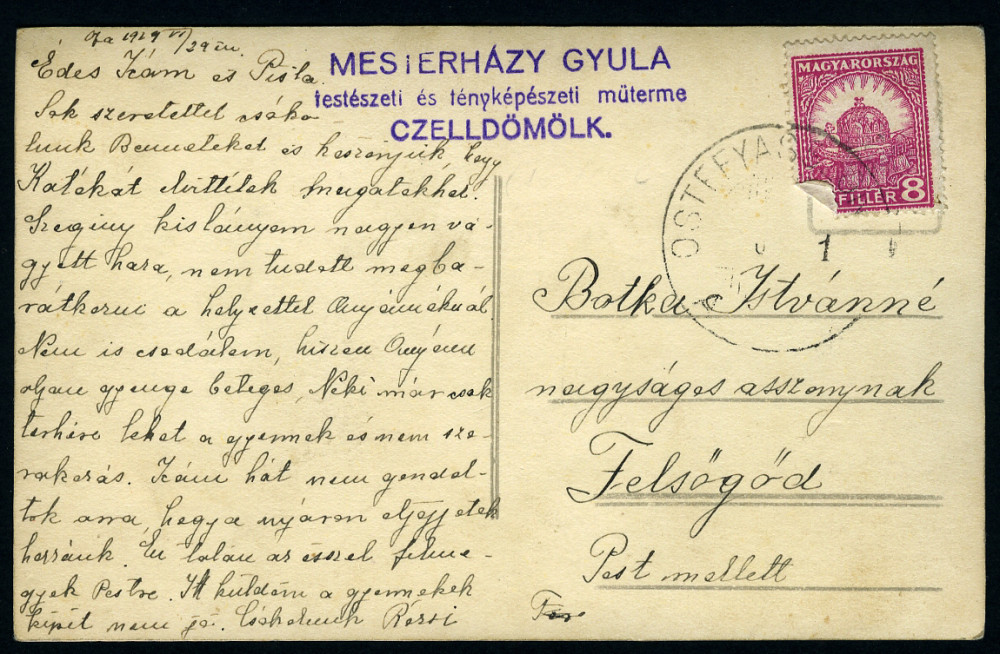 1929 VI/29 én.
Édes Icám és Pista.
Sok szeretettel csóko
lunk Benneteket és köszönjük, hogy
Katókát elvittétek magatokhoz.
Szegény kislányom nagyon vá-
gyott haza, nem tudott megba-
rátkozni a helyzettel Anyáméknál.
Nem is csodálom, hiszen Anyám
olyan gyenge beteges, Neki már csak
terhére lehet a gyermek és nem szó-
rakozás. Icám hát nem gondol-
tok arra, hogy a nyáron eljöjjetek
hozzánk. Én talán az ősszel felme-
gyek Pestre. Itt küldöm a gyermekek
képét nem jó. Csókolunk Rózsi
MESTERHÁZY GYULA
festészeti és fényképészeti műterme
CZELLDÖMÖLK.
MAGYARORSZÁG
FILLÉR 8
OSTFFYAS
1
Botka Istvánné
nagyságos asszonynak
Felsőgöd
Pest mellett